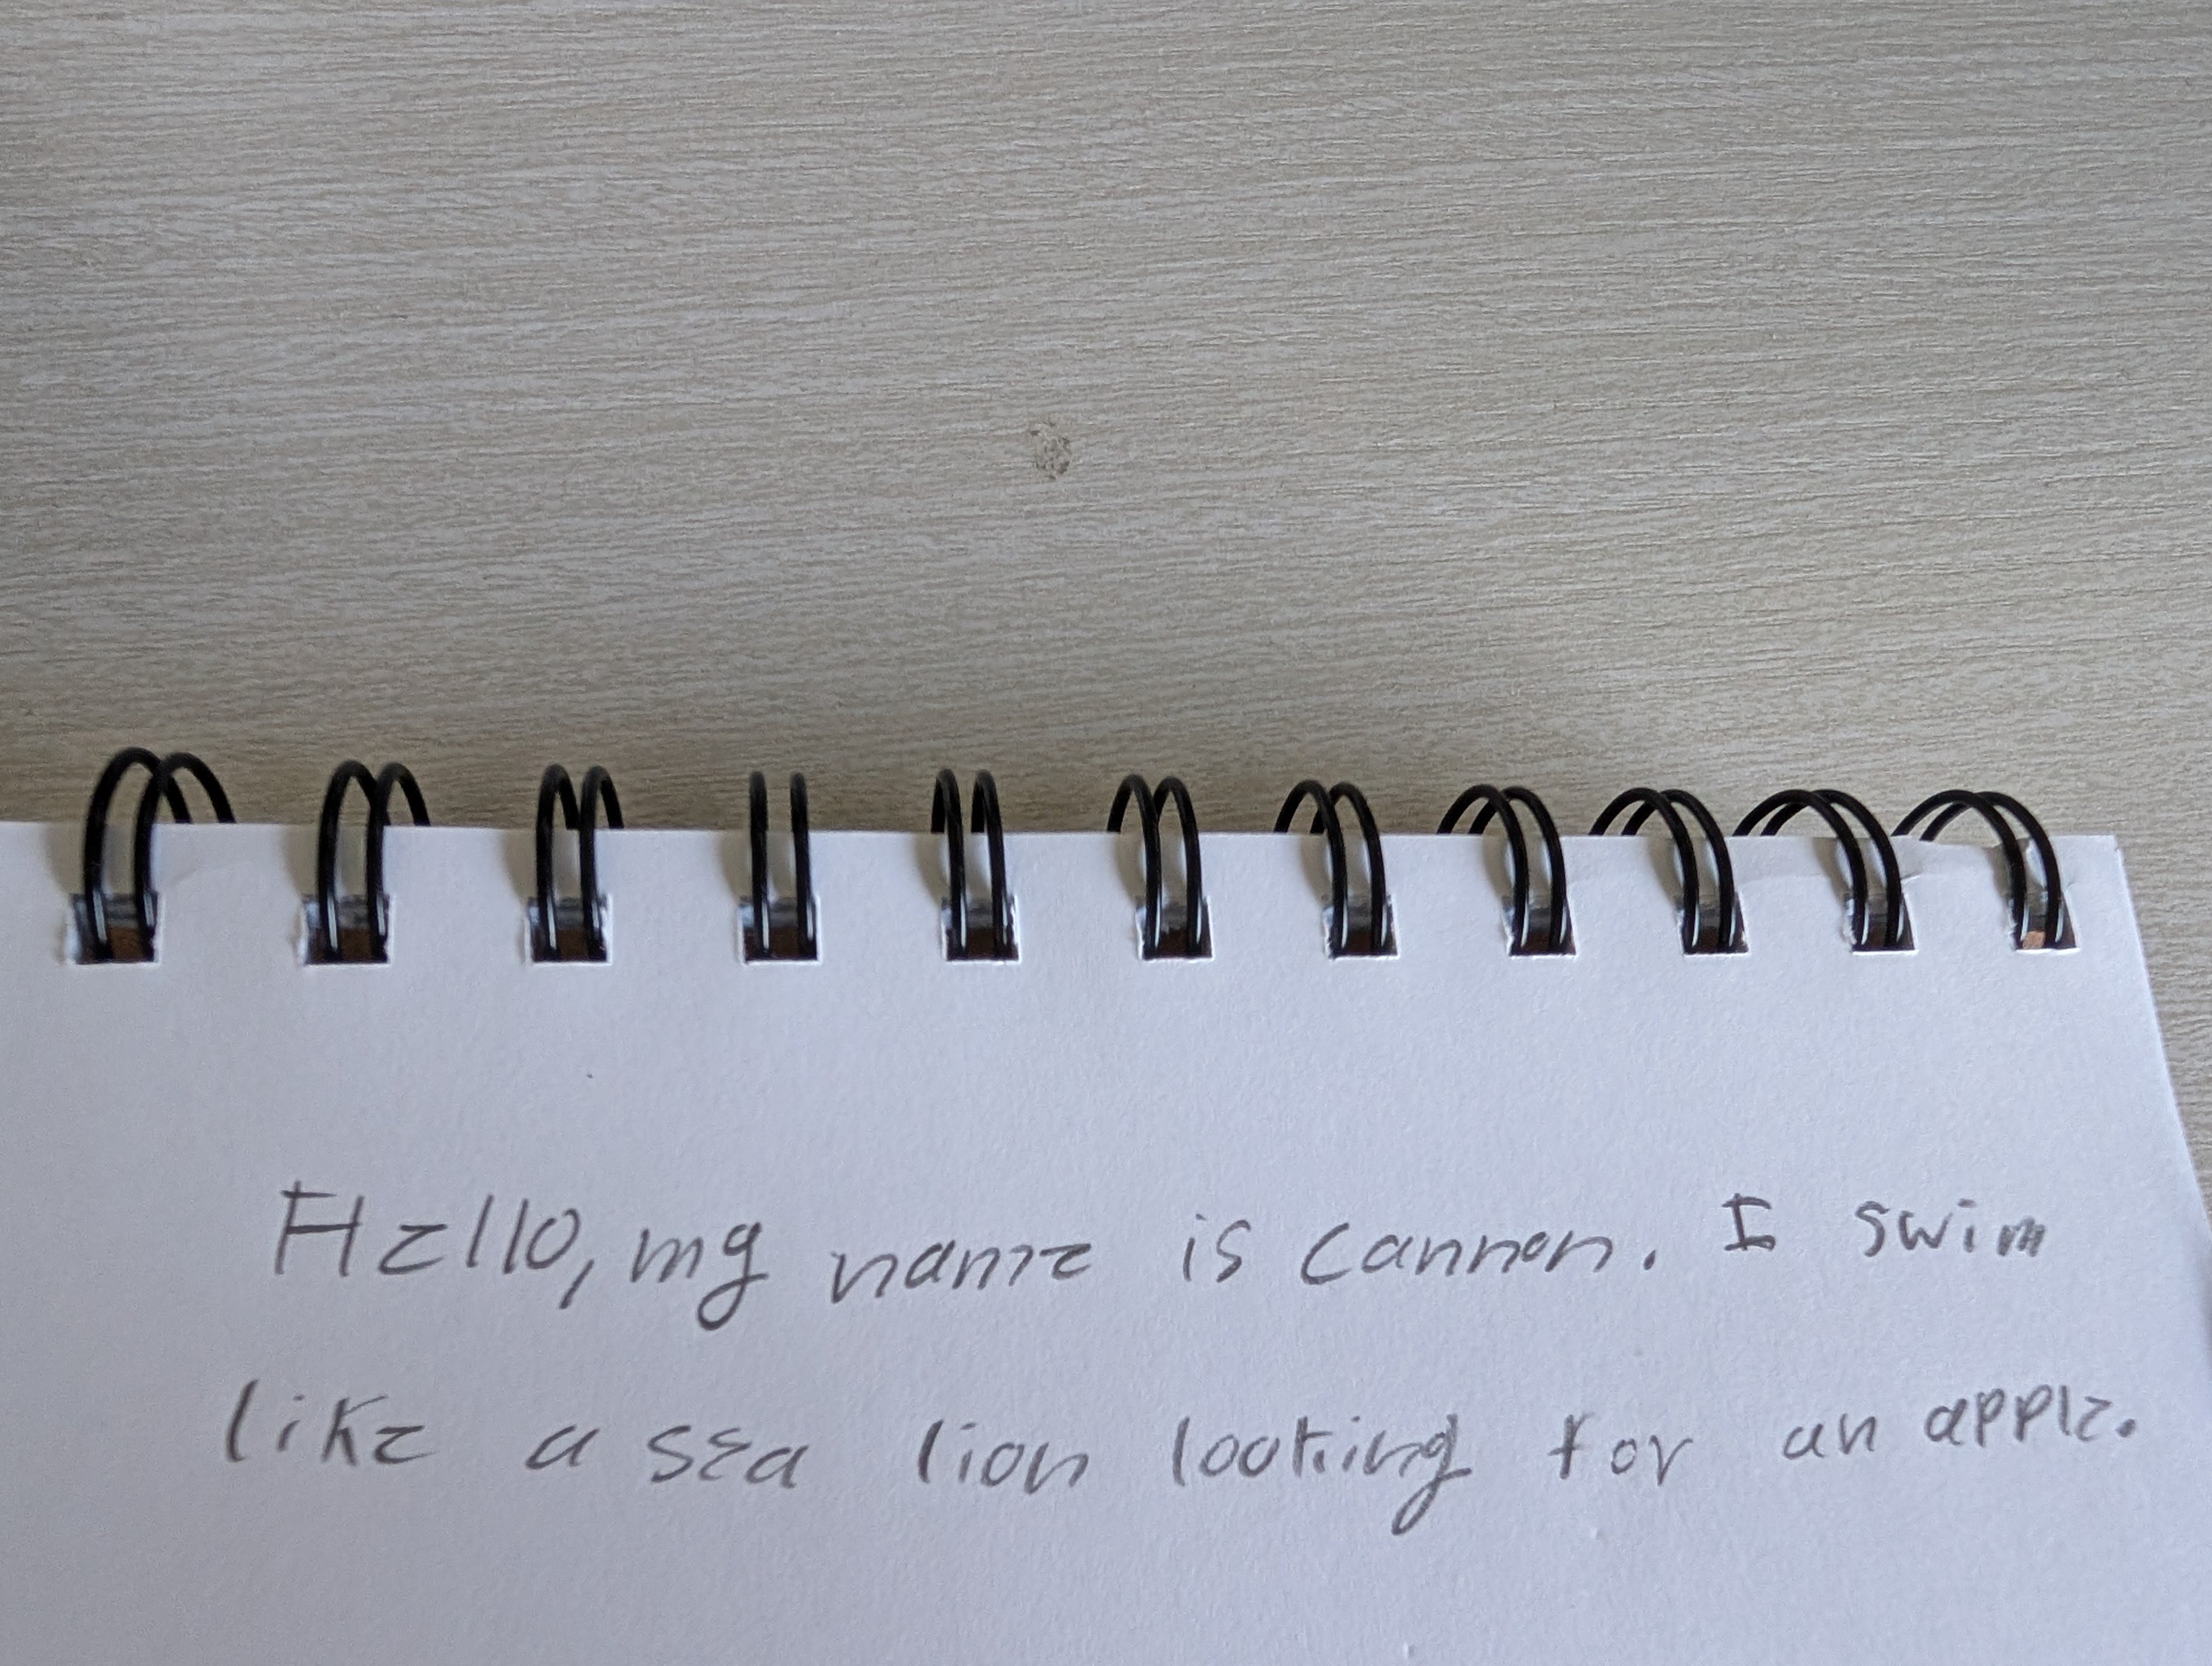 Hello, my name is Cannon. I swim
like a sea lion looking for an apple.